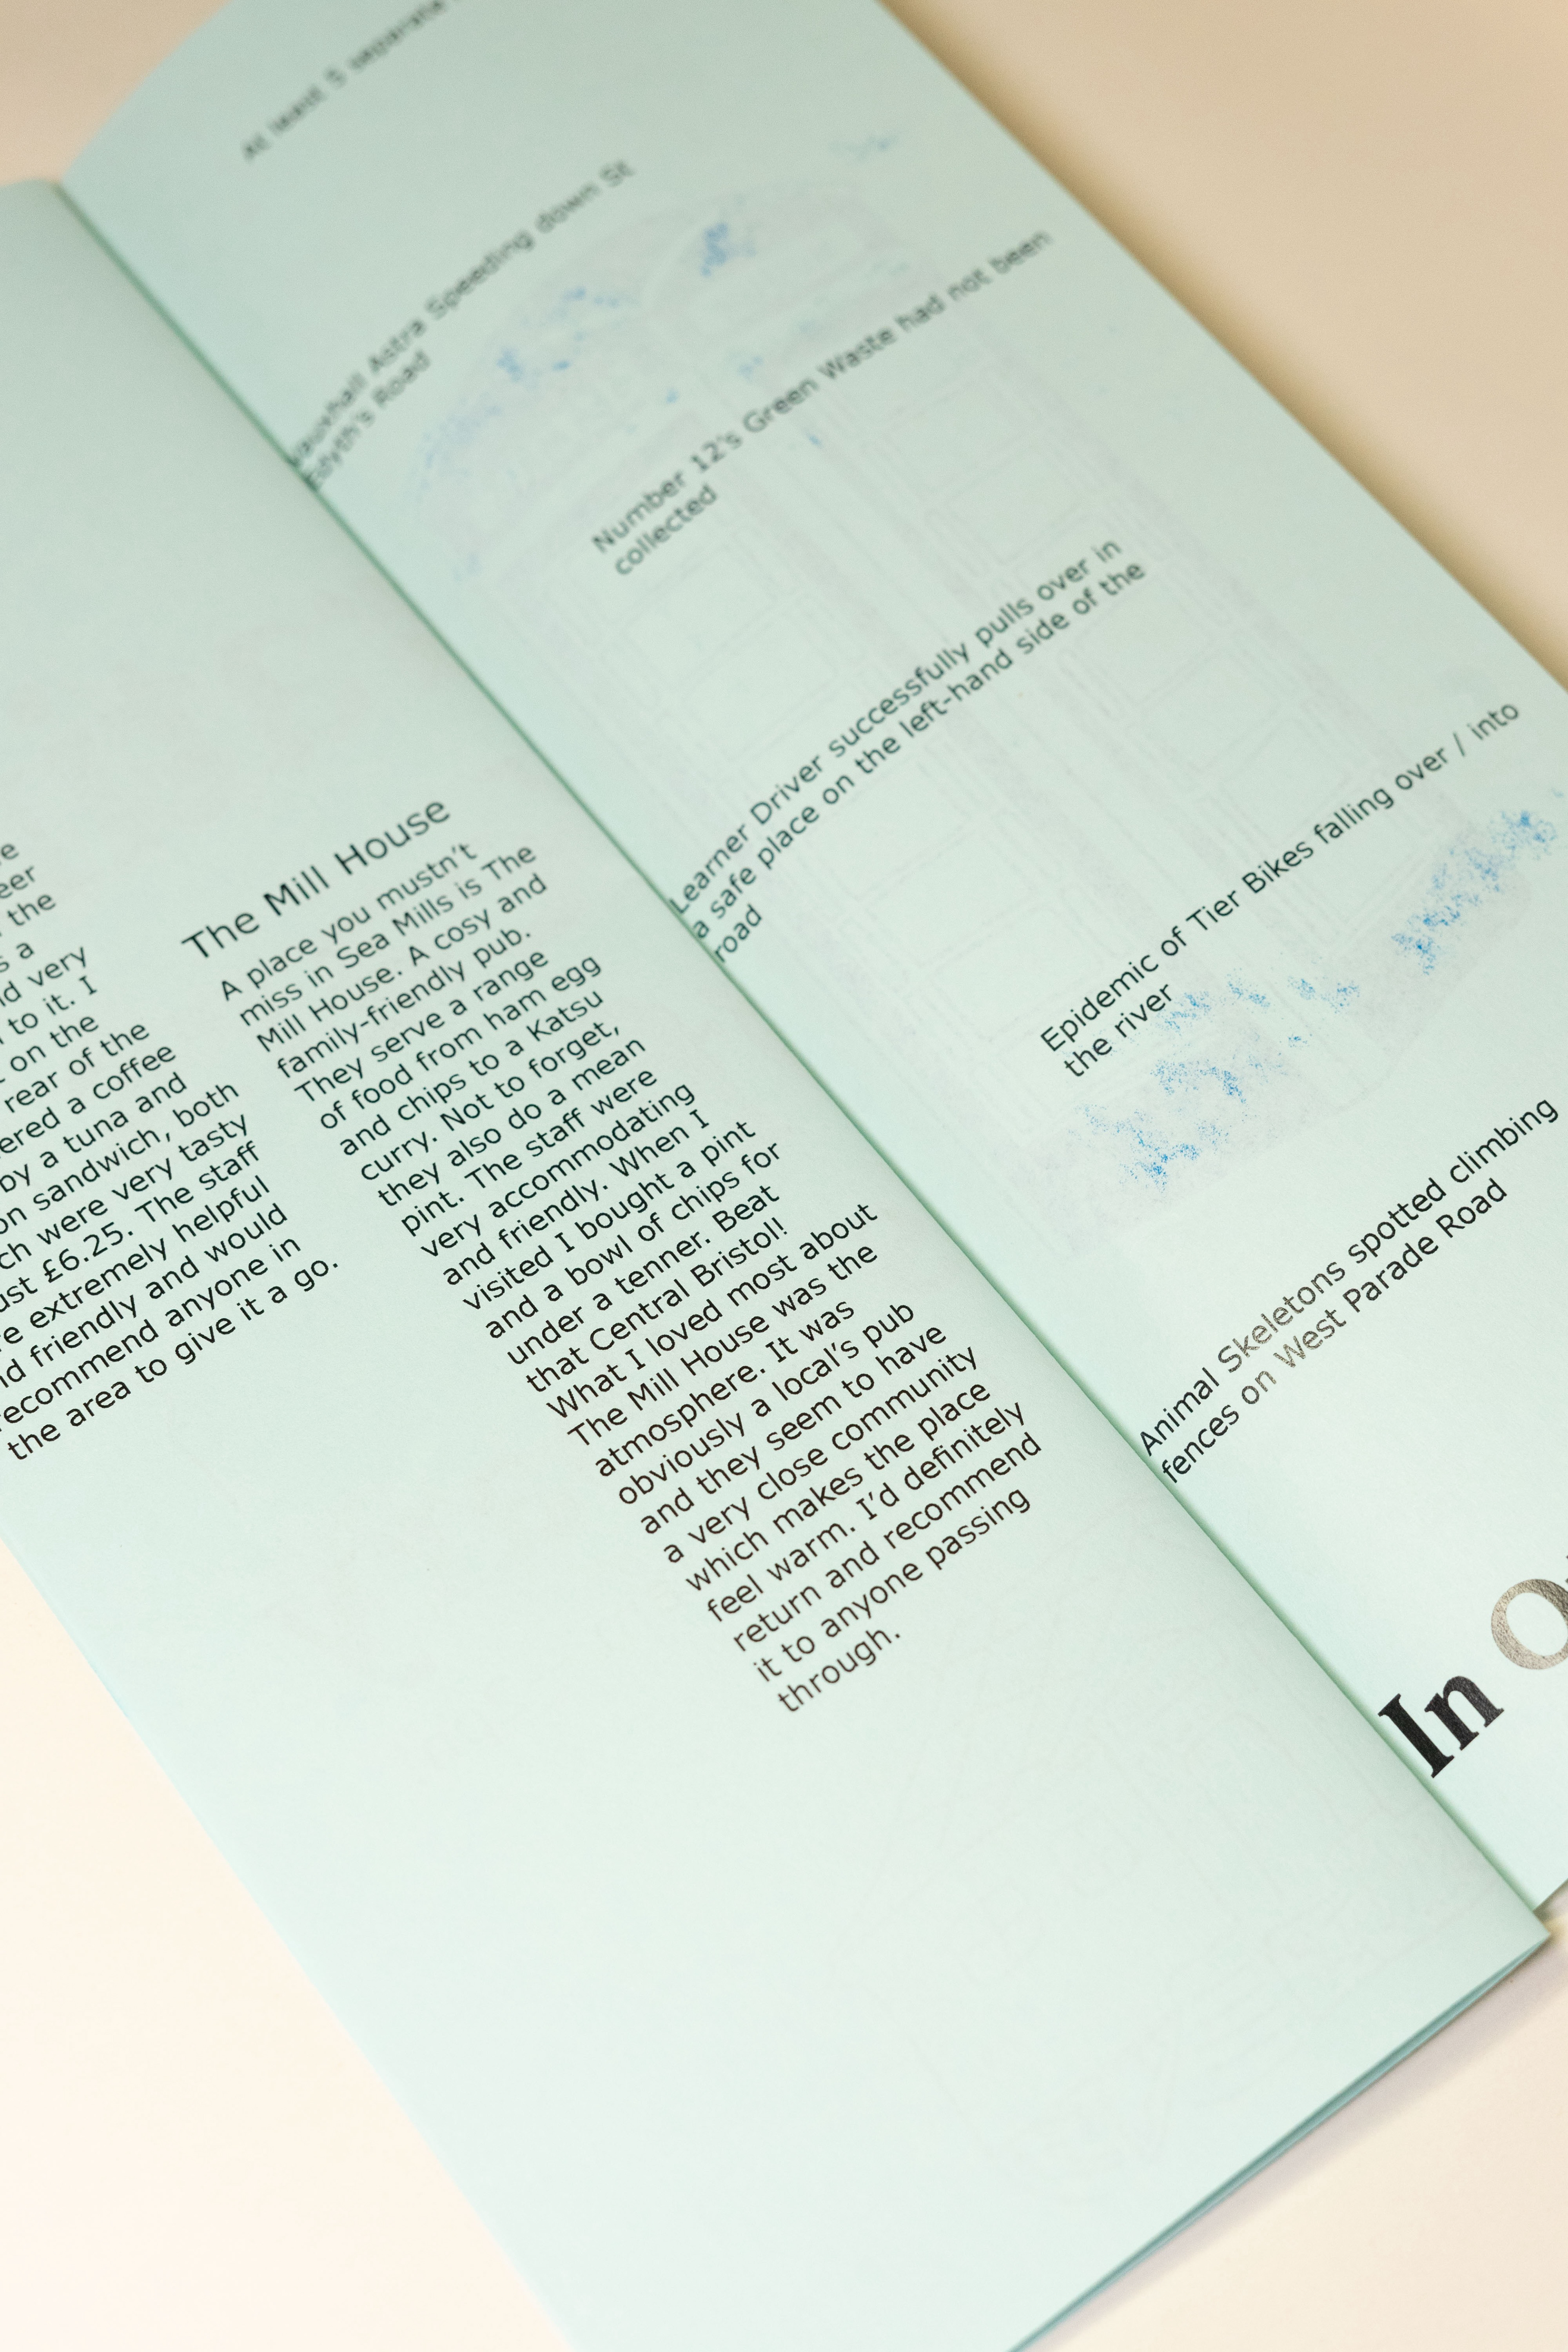 e
eer
the
s a
nd very
to it. I
on the
rear of the
ered a coffee
by a tuna and
on sandwich, both
ch were very tasty
ust £6.25. The staff
re extremely helpful
nd friendly and would
recommend anyone in
the area to give it a go.
The Mill House
A place you mustn't
miss in Sea Mills is The
Mill House. A cosy and
family-friendly pub.
They serve a range
of food from ham egg
and chips to a Katsu
curry. Not to forget,
they also do a mean
pint. The staff were
very accommodating
and friendly. When I
visited I bought a pint
and a bowl of chips for
under a tenner. Beat
that Central Bristol!
What I loved most about
The Mill House was the
atmosphere. It was
obviously a local's pub
and they seem to have
a very close community
which makes the place
feel warm. I'd definitely
return and recommend
it to anyone passing
through.
At least 5 separate
Vauxhall Astra Speeding down St
Edyth's Road
Number 12's Green Waste had not been
collected
Learner Driver successfully pulls over in
a safe place on the left-hand side of the
road
Epidemic of Tier Bikes falling over / into
the river
Animal Skeletons spotted climbing
fences on West Parade Road
In O